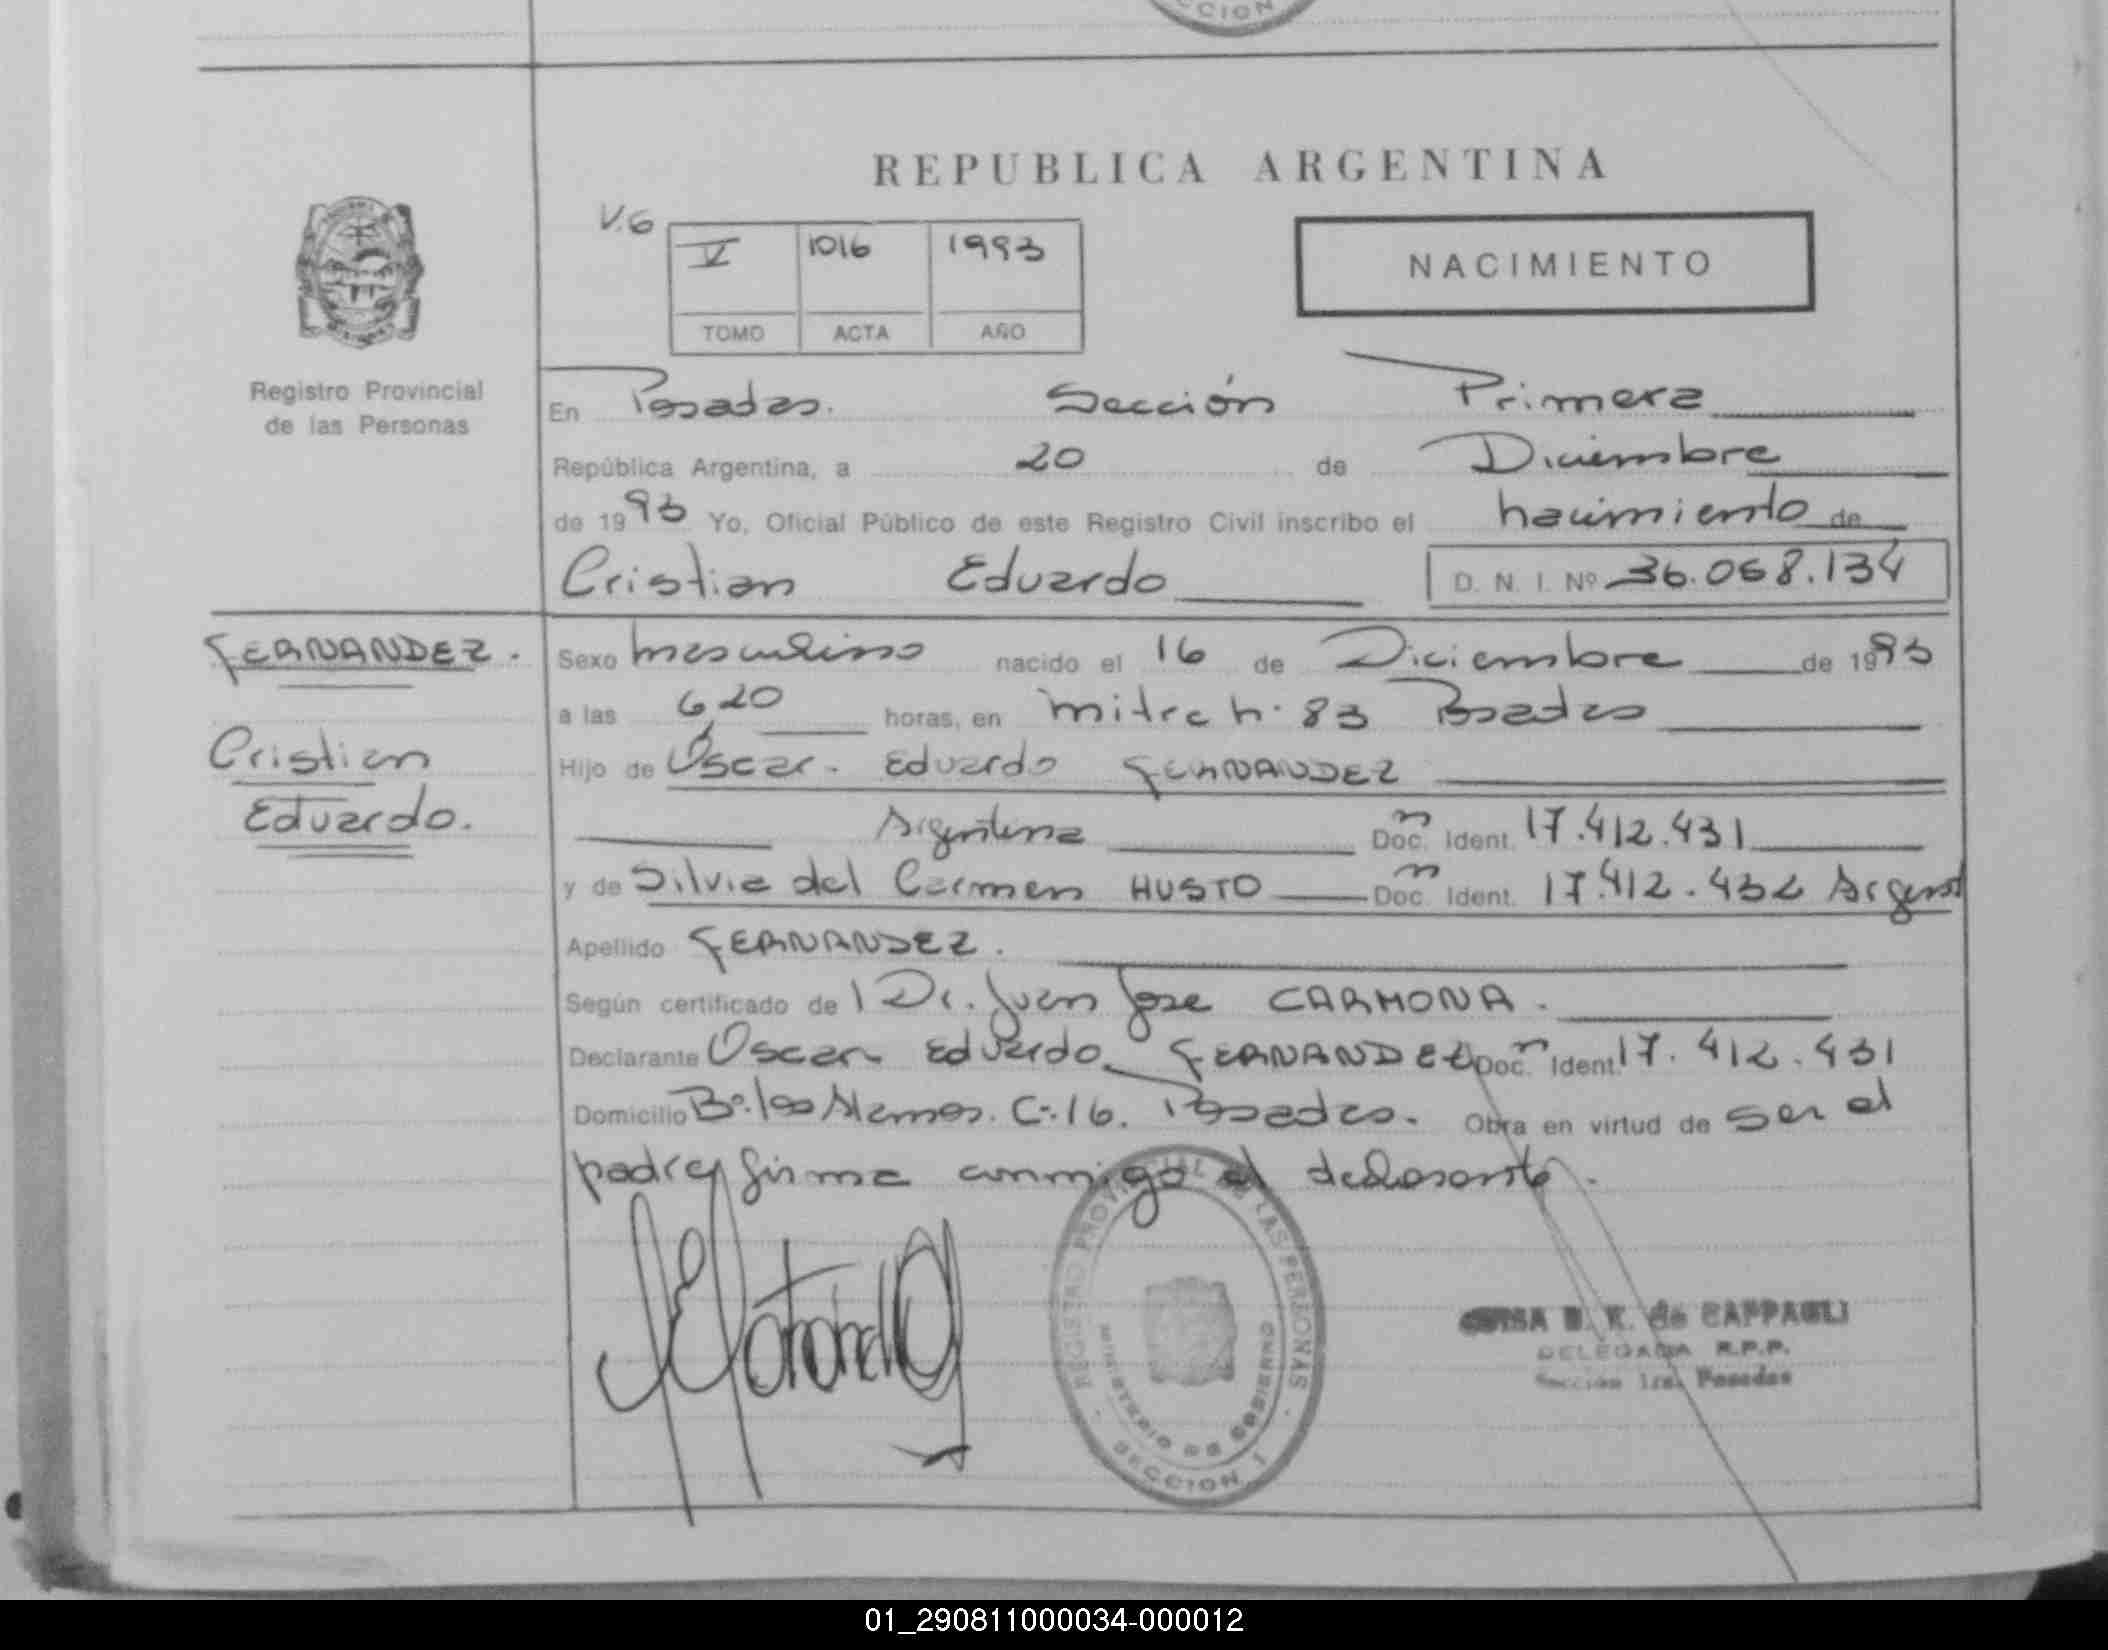 CCION
REPUBLICA ARGENTINA
V.6
V 1016 1993
TOMO ACTA AÑO
NACIMIENTO
Registro Provincial
de las Personas
En Posadas. Sección Primera
República Argentina, a 20 de Diciembre
de 1993 Yo, Oficial Público de este Registro Civil inscribo el nacimiento de
Cristian Eduardo D. N. I. Nº 36.068.134
FERNANDEZ.
Cristian
Eduardo.
Sexo masculino nacido el 16 de Diciembre de 1993
a las 6,20 horas, en mitre n. 83 Posadas
Hijo de Oscar. Eduardo FERNANDEZ
Argentina Doc. Ident. 17.412.431
y de Silvia del Carmen HUSTO Doc. Ident. 17.412.432 Argent
Apellido FERNANDEZ.
Según certificado de l Dr. Juan Jose CARMONA.
Declarante Oscar Eduardo FERNANDEZ Doc. Ident. 17.412.431
Domicilio Bº. los Alamos. C.16. Posadas. Obra en virtud de ser el
padre y firma conmigo el declarante.
REGISTRO PROVINCIAL DE LAS PERSONAS
MINISTERIO DE GOBIERNO
SECCION 1
de CAPPAGLI
DELEGADA R.P.P.
Sección 1ra. Posadas
01_290811000034-000012